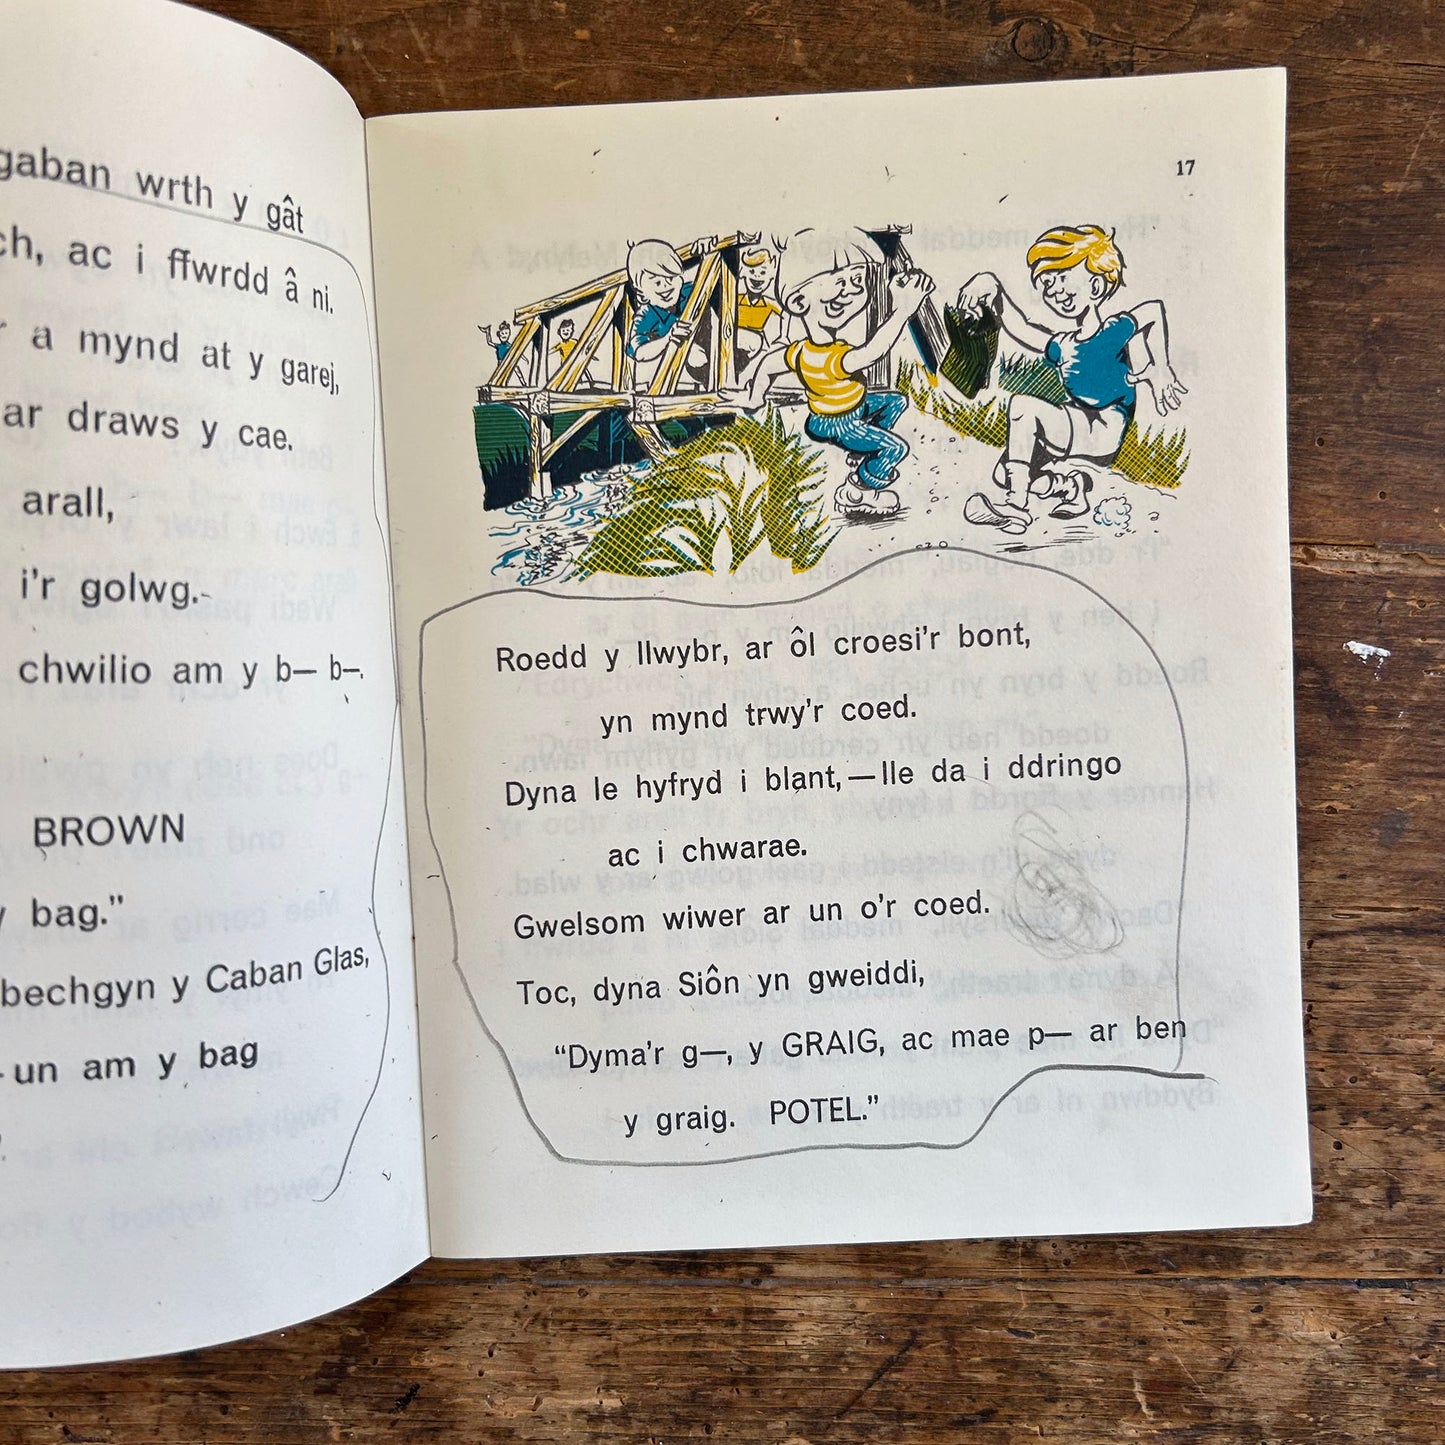 gaban wrth y gât
ch, ac i ffwrdd â ni.
r a mynd at y garej,
ar draws y cae.
arall,
i'r golwg.
chwilio am y b— b—.
BROWN
y bag."
bechgyn y Caban Glas,
un am y bag
17
Roedd y llwybr, ar ôl croesi'r bont,
yn mynd trwy'r coed.
Dyna le hyfryd i blant, — lle da i ddringo
ac i chwarae.
Gwelsom wiwer ar un o'r coed.
Toc, dyna Siôn yn gweiddi,
"Dyma'r g—, y GRAIG, ac mae p— ar ben
y graig. POTEL."